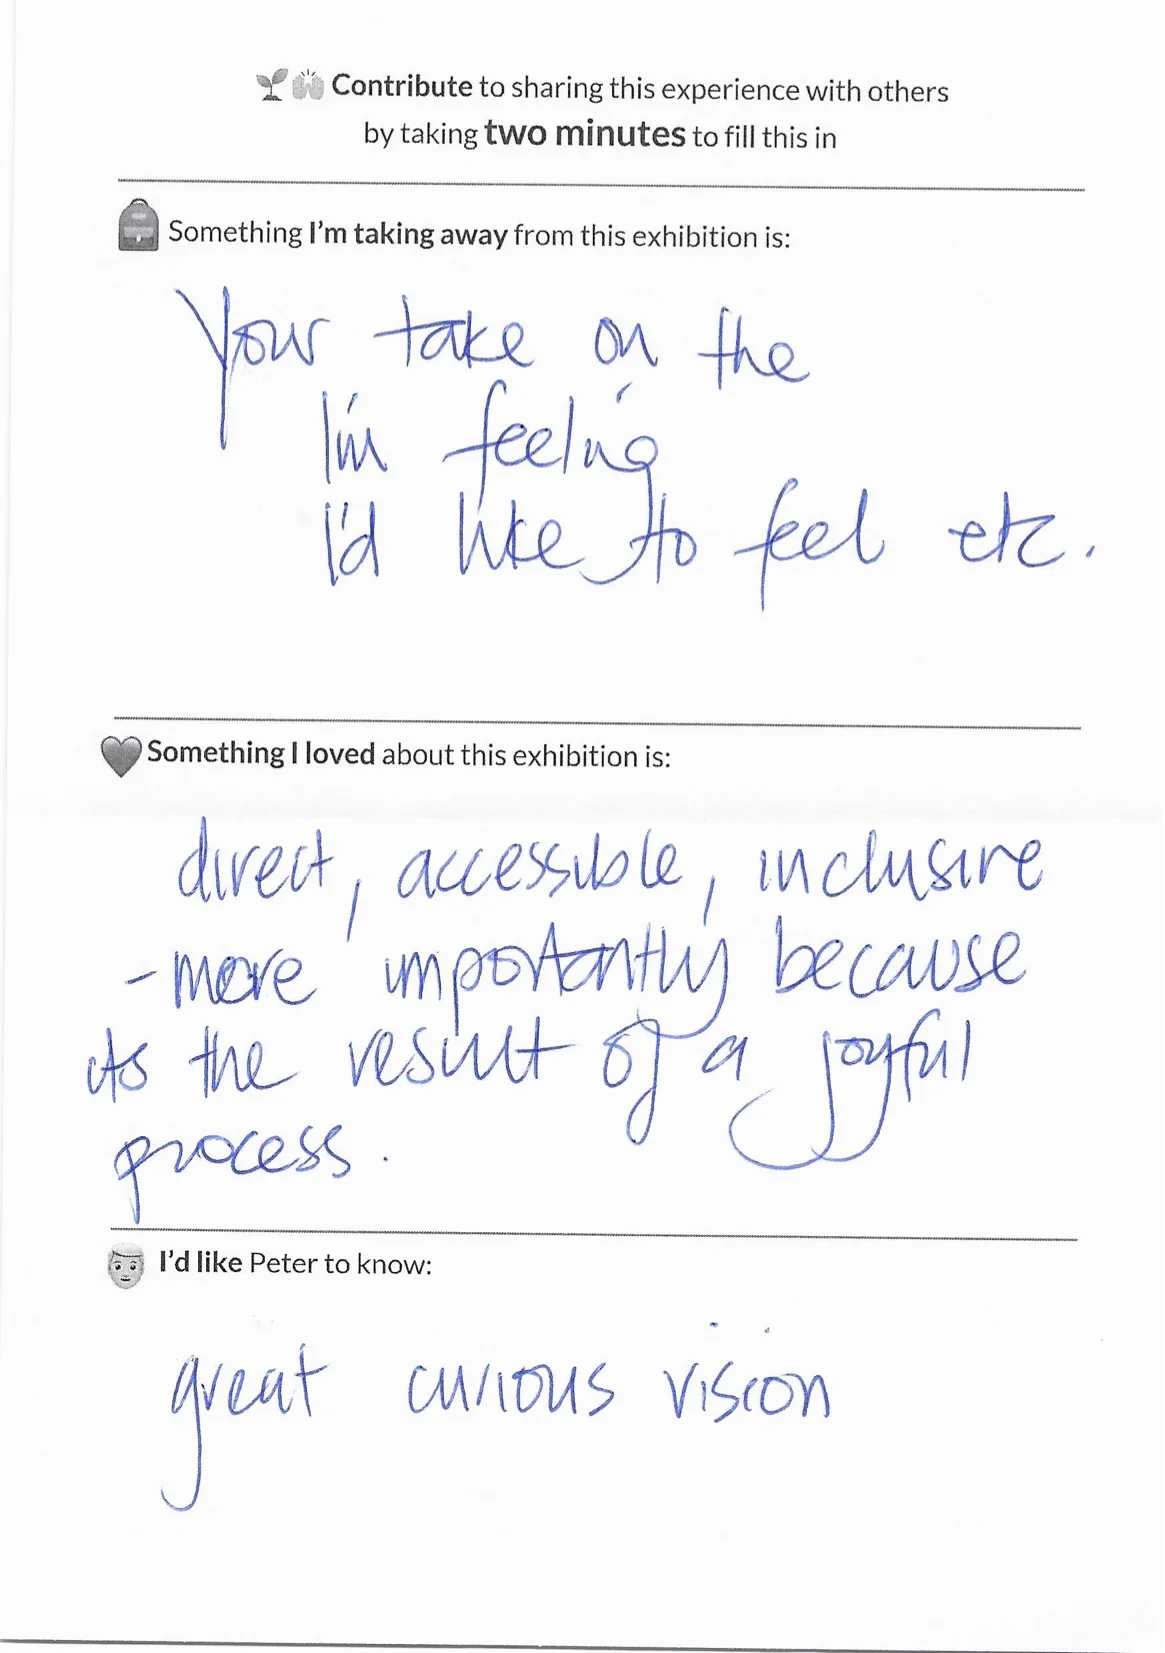 Contribute to sharing this experience with others
by taking two minutes to fill this in
Something I'm taking away from this exhibition is:
Your take on the
I'm feeling
I'd like to feel etc.
Something I loved about this exhibition is:
direct, accessible, inclusive
- more importantly because
its the result of a joyful
process.
I'd like Peter to know:
great curious vision